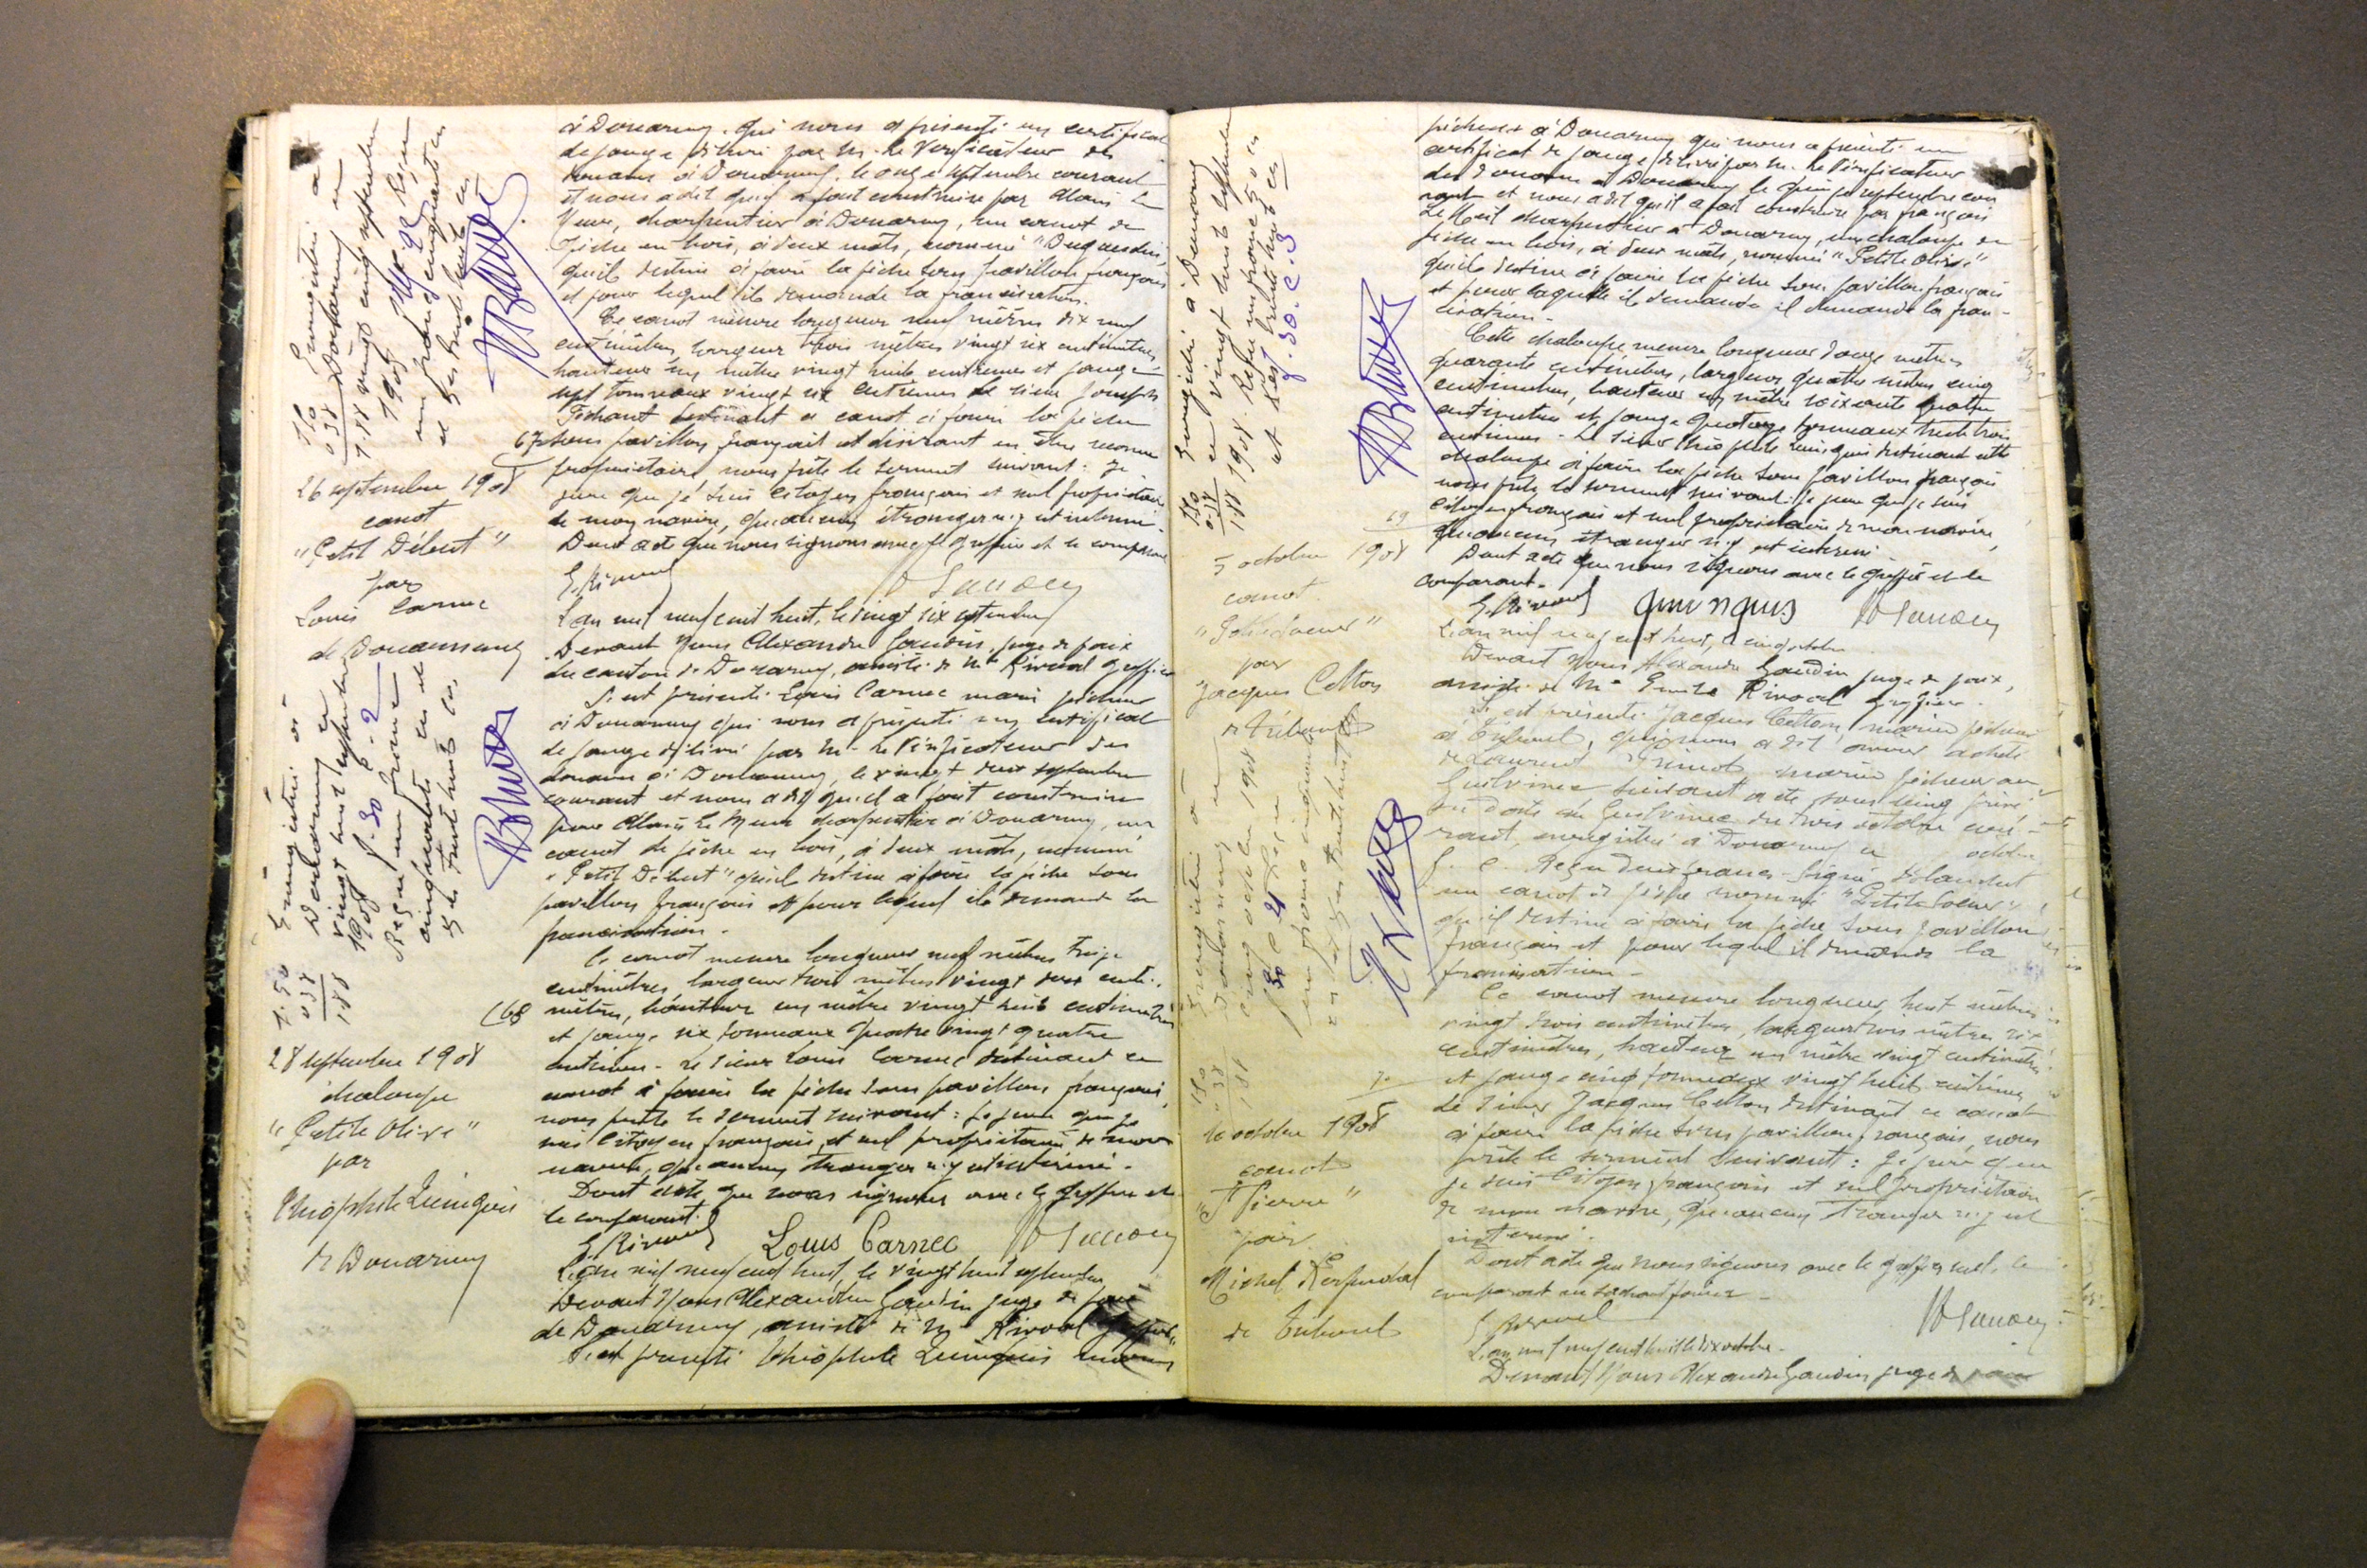 à Douarnenez qui nous a présenté un certificat
de jauge délivré par M. le Vérificateur des
douanes à Douarnenez, le onze septembre courant
et nous a dit qu'il a fait construire par Alain Le
charpentier à Douarnenez, un canot de
pêche en bois, à deux mâts, nommé "Duguesclin"
qu'il destine à faire la pêche sous pavillon français
et pour lequel il demande la francisation.
Ce canot mesure longueur neuf mètres dix neuf
centimètres, largeur trois mètres vingt six centimètres,
hauteur un mètre vingt huit centièmes et jauge
sept tonneaux vingt six centièmes Le sieur Joseph
destinant ce canot à faire la pêche
sous pavillon français et désirant en être reconnu
propriétaire nous prête le serment suivant : Je
jure que je suis citoyen français et seul propriétaire
de mon navire, qu'aucun étranger n'y est intéressé.
Dont acte que nous signons avec le greffier et le comparant
E. Rivoal
L'an mil neuf cent huit, le vingt six septembre
Devant Nous Alexandre Gaudin, juge de paix
du canton de Douarnenez, assisté de Me Rivoal greffier
S'est présenté Louis Carnec marin pêcheur
à Douarnenez qui nous a présenté un certificat
de jauge délivré par M. le Vérificateur des
douanes à Douarnenez, le vingt deux septembre
courant et nous a dit qu'il a fait construire
par Alain Le charpentier à Douarnenez, un
canot de pêche en bois, à deux mâts, nommé
"Petit Début" qu'il destine à faire la pêche sous
pavillon français et pour lequel il demande la
francisation.
Ce canot mesure longueur neuf mètres treize
centimètres, largeur trois mètres vingt deux centi-
mètres, hauteur un mètre vingt huit centimètres
et jauge six tonneaux quatre vingt quatre
centièmes. Le sieur Louis Carnec destinant ce
canot à faire la pêche sous pavillon français,
nous prête le serment suivant : je jure que je
suis citoyen français et seul propriétaire de mon
navire, qu'aucun étranger n'y est intéressé.
Dont acte que nous signons avec le greffier et
le comparant.
E. Rivoal Louis Carnec
L'an mil neuf cent huit, le vingt huit septembre
Devant Nous Alexandre Gaudin juge de paix
de Douarnenez, assisté de Me Rivoal greffier
S'est présenté Théophile Quinquis marin
Enregistré à
Douarnenez le
vingt cinq septembre
1908
Reçu
un franc cinquante
et Des trente huit ces
1.50
0.38
1.88
67
26 septembre 1908
canot
"Petit Début"
par
Louis Carnec
de Douarnenez
Enregistré à
Douarnenez le
vingt huit septembre
1908 f. 30 c. 2
Reçu un franc
cinquante ces et
Des trente huit ces.
1.50
0.38
1.88
68
28 septembre 1908
chaloupe
"Petite Olive"
par
Théophile Quinquis
de Douarnenez
pêcheur à Douarnenez qui nous a présenté un
certificat de jauge délivré par M. le Vérificateur
des douanes à Douarnenez le quinze septembre cou-
rant et nous a dit qu'il a fait construire par françois
charpentier à Douarnenez, une chaloupe de
pêche en bois, à deux mâts, nommée "Petite Olive"
qu'il destine à faire la pêche sous pavillon français
et pour laquelle il demande il demande la fran-
cisation.
Cette chaloupe mesure longueur douze mètres
quarante centimètres, largeur quatre mètres cinq
centimètres, hauteur un mètre soixante quatre
centimètres et jauge quatorze tonneaux trente trois
centièmes. Le sieur Théophile Quinquis destinant cette
chaloupe à faire la pêche sous pavillon français
nous prête le serment suivant : je jure que je suis
citoyen français et seul propriétaire de mon navire,
qu'aucun étranger n'y est intéressé
Dont acte que nous signons avec le greffier et le
comparant.
E. Rivoal quinquis
L'an mil neuf cent huit, le cinq octobre
Devant Nous Alexandre Gaudin juge de paix,
assisté de Me Emile Rivoal greffier.
S'est présenté Jacques Celton, marin pêcheur
à Tréboul, qui nous a dit avoir acheté
de Laurent marin pêcheur au
Guilvinec suivant acte sous seing privé
en date au Guilvinec du trois octobre cou-
rant, enregistré à Douarnenez le octobre
f. c. Reçu deux francs. Signé
un canot de pêche nommé "Petite Soeur"
qu'il destine à faire la pêche sous pavillon
français et pour lequel il demande la
francisation.
Ce canot mesure longueur, huit mètres
vingt trois centimètres, largeur trois mètres six
centimètres, hauteur un mètre vingt centimètres
et jauge cinq tonneaux vingt huit centièmes
Le sieur Jacques Celton destinant ce canot
à faire la pêche sous pavillon français, nous
prête le serment suivant : Je jure que
je suis citoyen français et seul propriétaire
de mon navire, qu'aucun étranger n'y est
intéressé.
Dont acte que nous signons avec le greffier seul, le
comparant ne sachant
E. Rivoal
L'an mil neuf cent huit le dix octobre.
Devant Nous Alexandre Gaudin juge de paix
Enregistré à Douarnenez
le vingt huit septembre
1908. Reçu un franc 50 ces
et Des trente huit ces
f. 30. c. 3
1.50
0.38
1.88
69
5 octobre 1908
canot
"Petite Soeur"
par
Jacques Celton
de Tréboul
Enregistré à
Douarnenez le
cinq octobre 1908
Reçu
un franc cinquante
ces et Des trente huit
1.50
0.38
1.88
70
10 octobre 1908
canot
"St Pierre"
par
Michel
de Tréboul